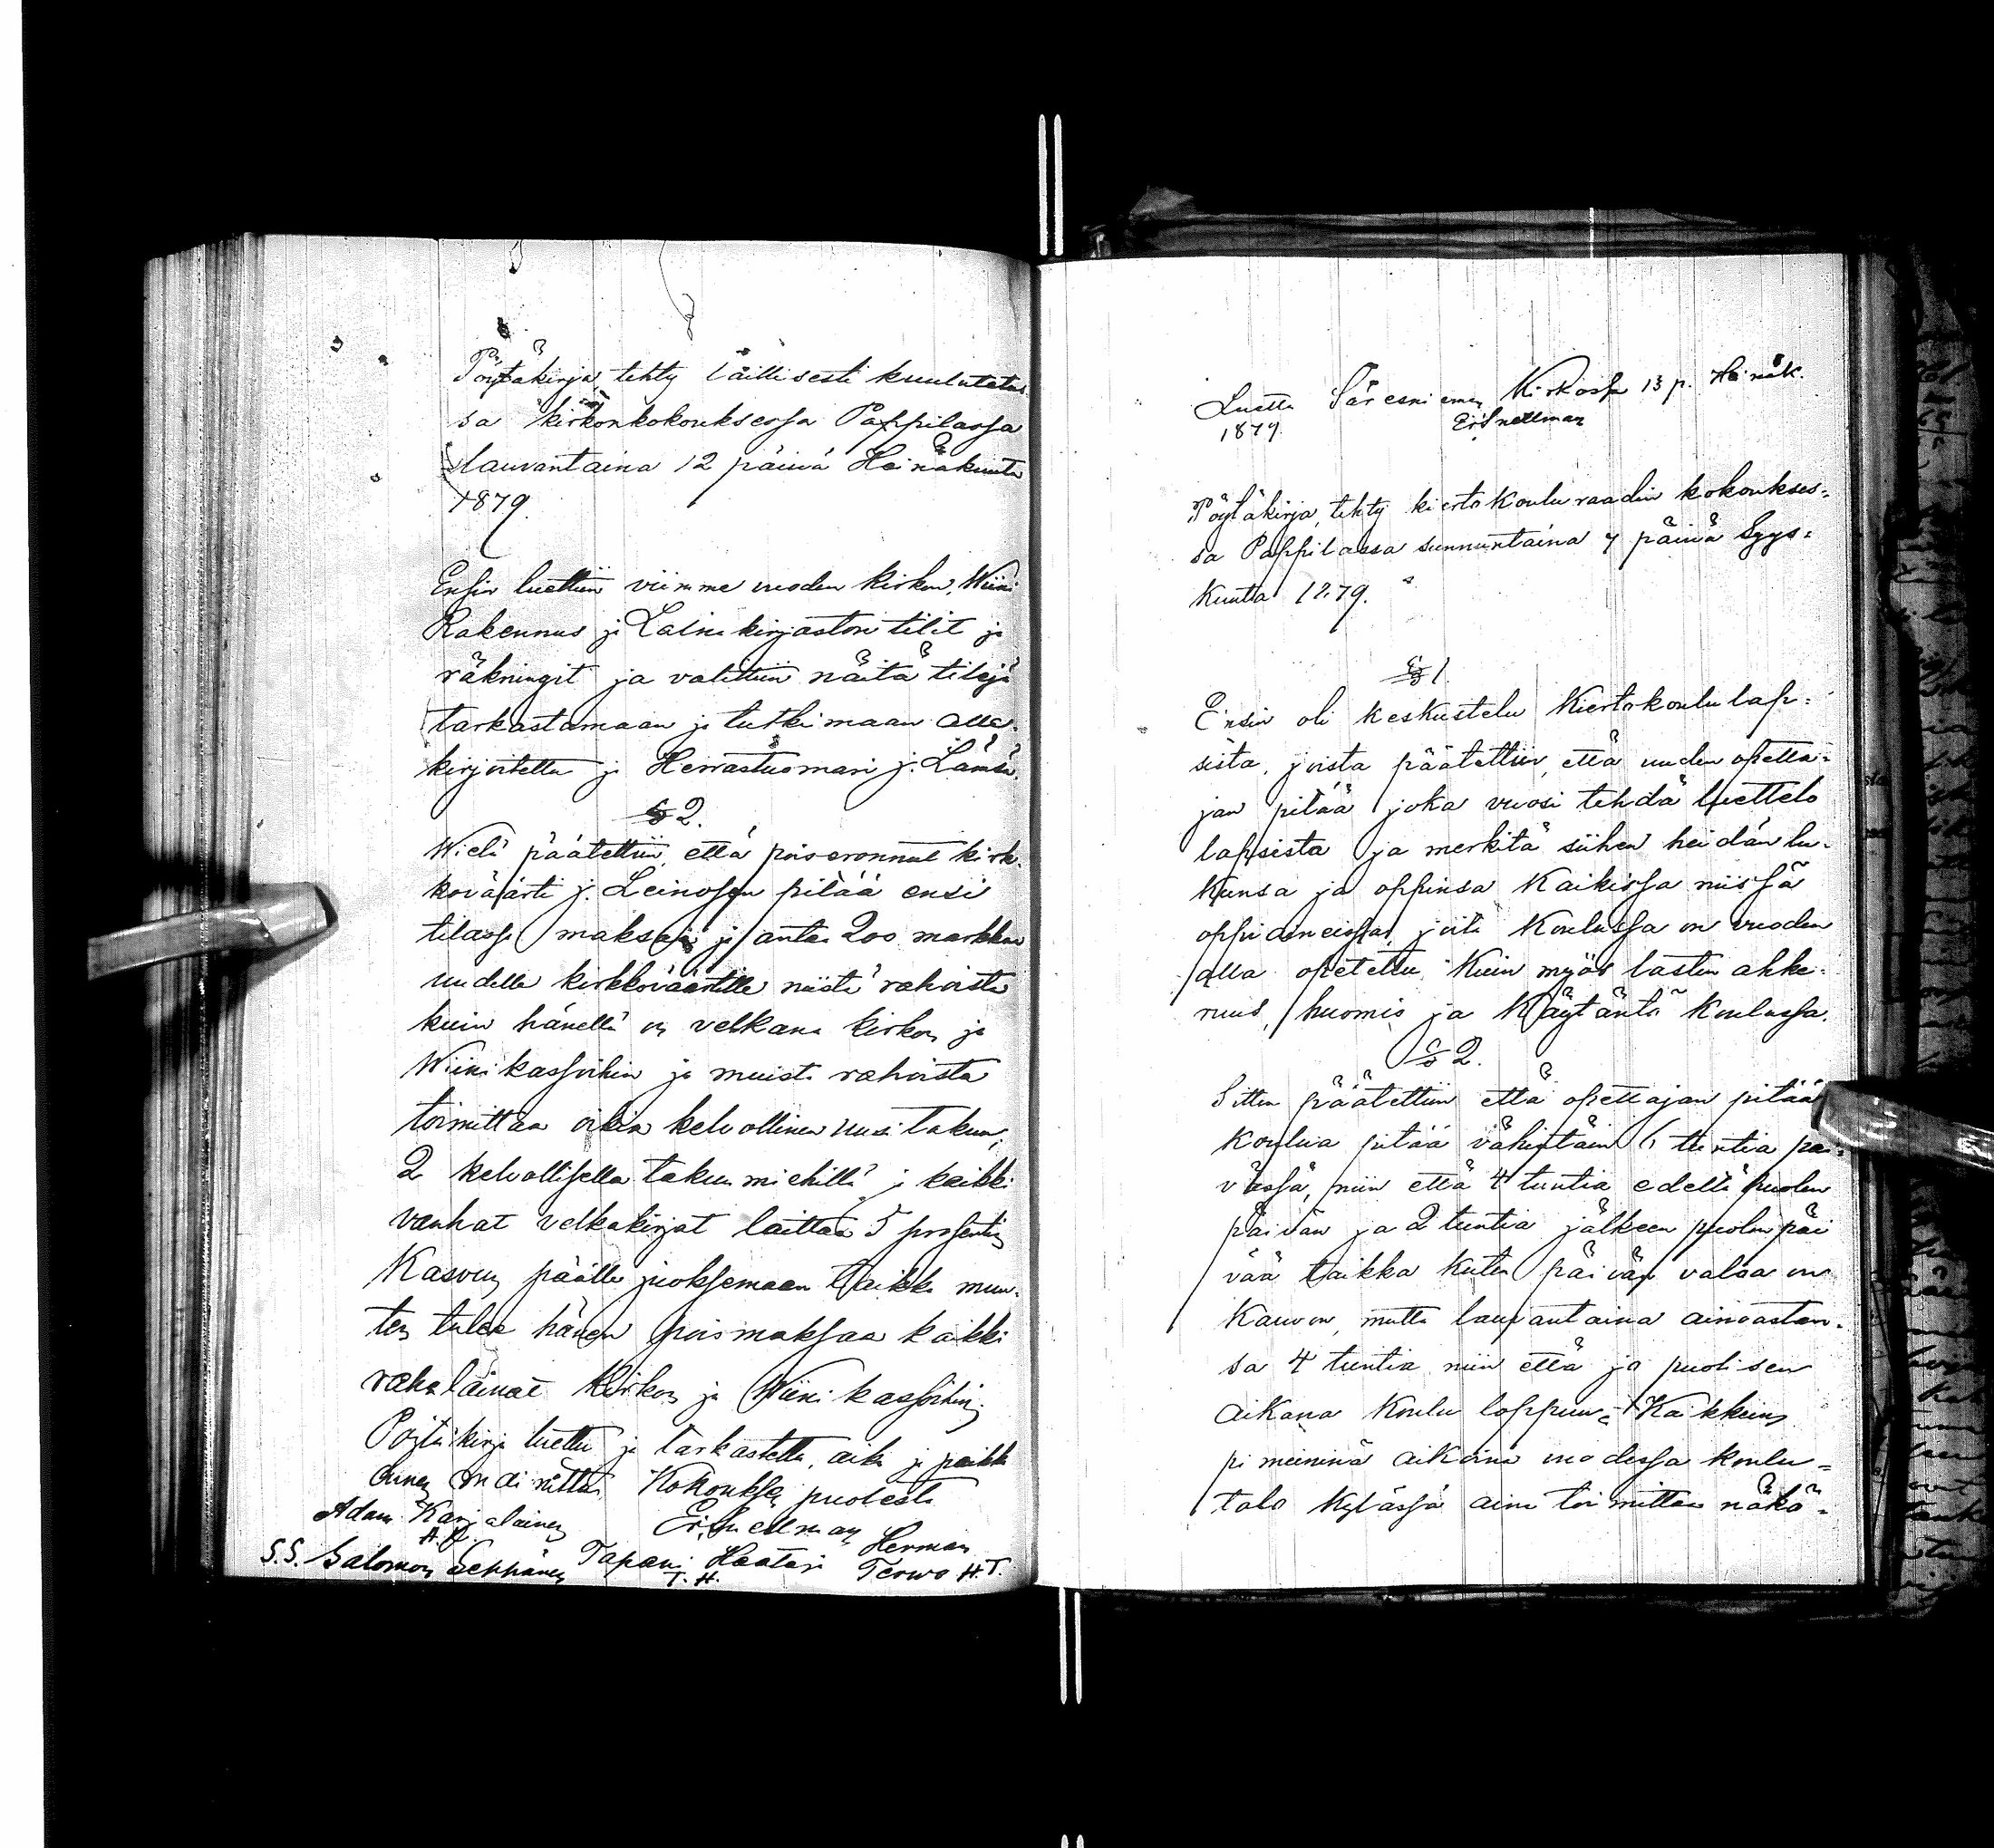 Pöytäkirja, tehty laillisesti kuulutetus
sa kirkonkokouksessa Pappilassa
lauvantaina 12 päivä Heinäkuuta
1879.
Ensin luettiin viimme vuoden kirkon, Wiini
Rakennus ja Laina kirjaston tilit ja
räkningit ja valittiin näitä tilejä
tarkastamaan ja tutkimaan alla
kirjoitettu ja Herrastuomari j. Lämsä.
§ 2.
Wielä päätettiin, että poiseronnut kirk-
kovääärti j. Leinosen pitää ensi
tilassa maksaa ja antaa 200 markkaa
uudelle kirkkoväärtille niistä rahoista
kuin hänellä on velkana kirkon ja
Wiini kassoihin ja muista rahoista
toimittaa oikia kelvollinen uusi takuu,
2 kelvollisella takuu miehillä ja kaikki
vanhat velkakirjat laittaa 5 prosentin
Kasvun päälle juoksemaan taikka muu-
ten tulee hänen poismaksaa kaikki
rahalainat Kirkon ja Wiini kassoihin.
Pöytäkirja luettu ja tarkastettu, aika ja paikka
Kokouksen puolesta
Adam Karjalainen
A. K.
Er. Snellman
Herman
S.S. Salomon Seppänen Tapani Haataja Terwo H.T.
T. H.
Luettu Säresniemen Kirkossa 13 p. Heinäk.
1879. Er Snellman
Pöytäkirja, tehty kiertokouluraadin kokoukses-
sa Pappilassa sunnuntaina 7 päivä Syys-
kuuta 1879.
§ 1.
Ensin oli keskustelu Kiertokoulu lap-
sista, joista päätettiin, että uuden opetta-
jan pitää joka vuosi tehdä luettelo
lapsista ja merkitä siihen heidän lu-
kunsa ja oppinsa Kaikissa niissä
oppiaineissa, joita Koulussa on vuoden
alla opetettu, Kuin myös lasten ahke-
ruus, huomio ja Käytäntö Koulussa.
§ 2.
Sitten päätettiin että opettajan pitää
koulua pitää vähintäin 6 tuntia päi-
vässä, niin että 4 tuntia edellä puolen
päivän ja 2 tuntia jälkeen puolen päi
vää taikka kuten päivän valoa on
Kauvon, mutta lauvantaina ainoastan-
sa 4 tuntia niin että jo puolisen
aikana Koulu loppuu. Kaikkein
pimeininä aikoina vuodessa koulu-
talo Kylässä aina toimittaa näkö-